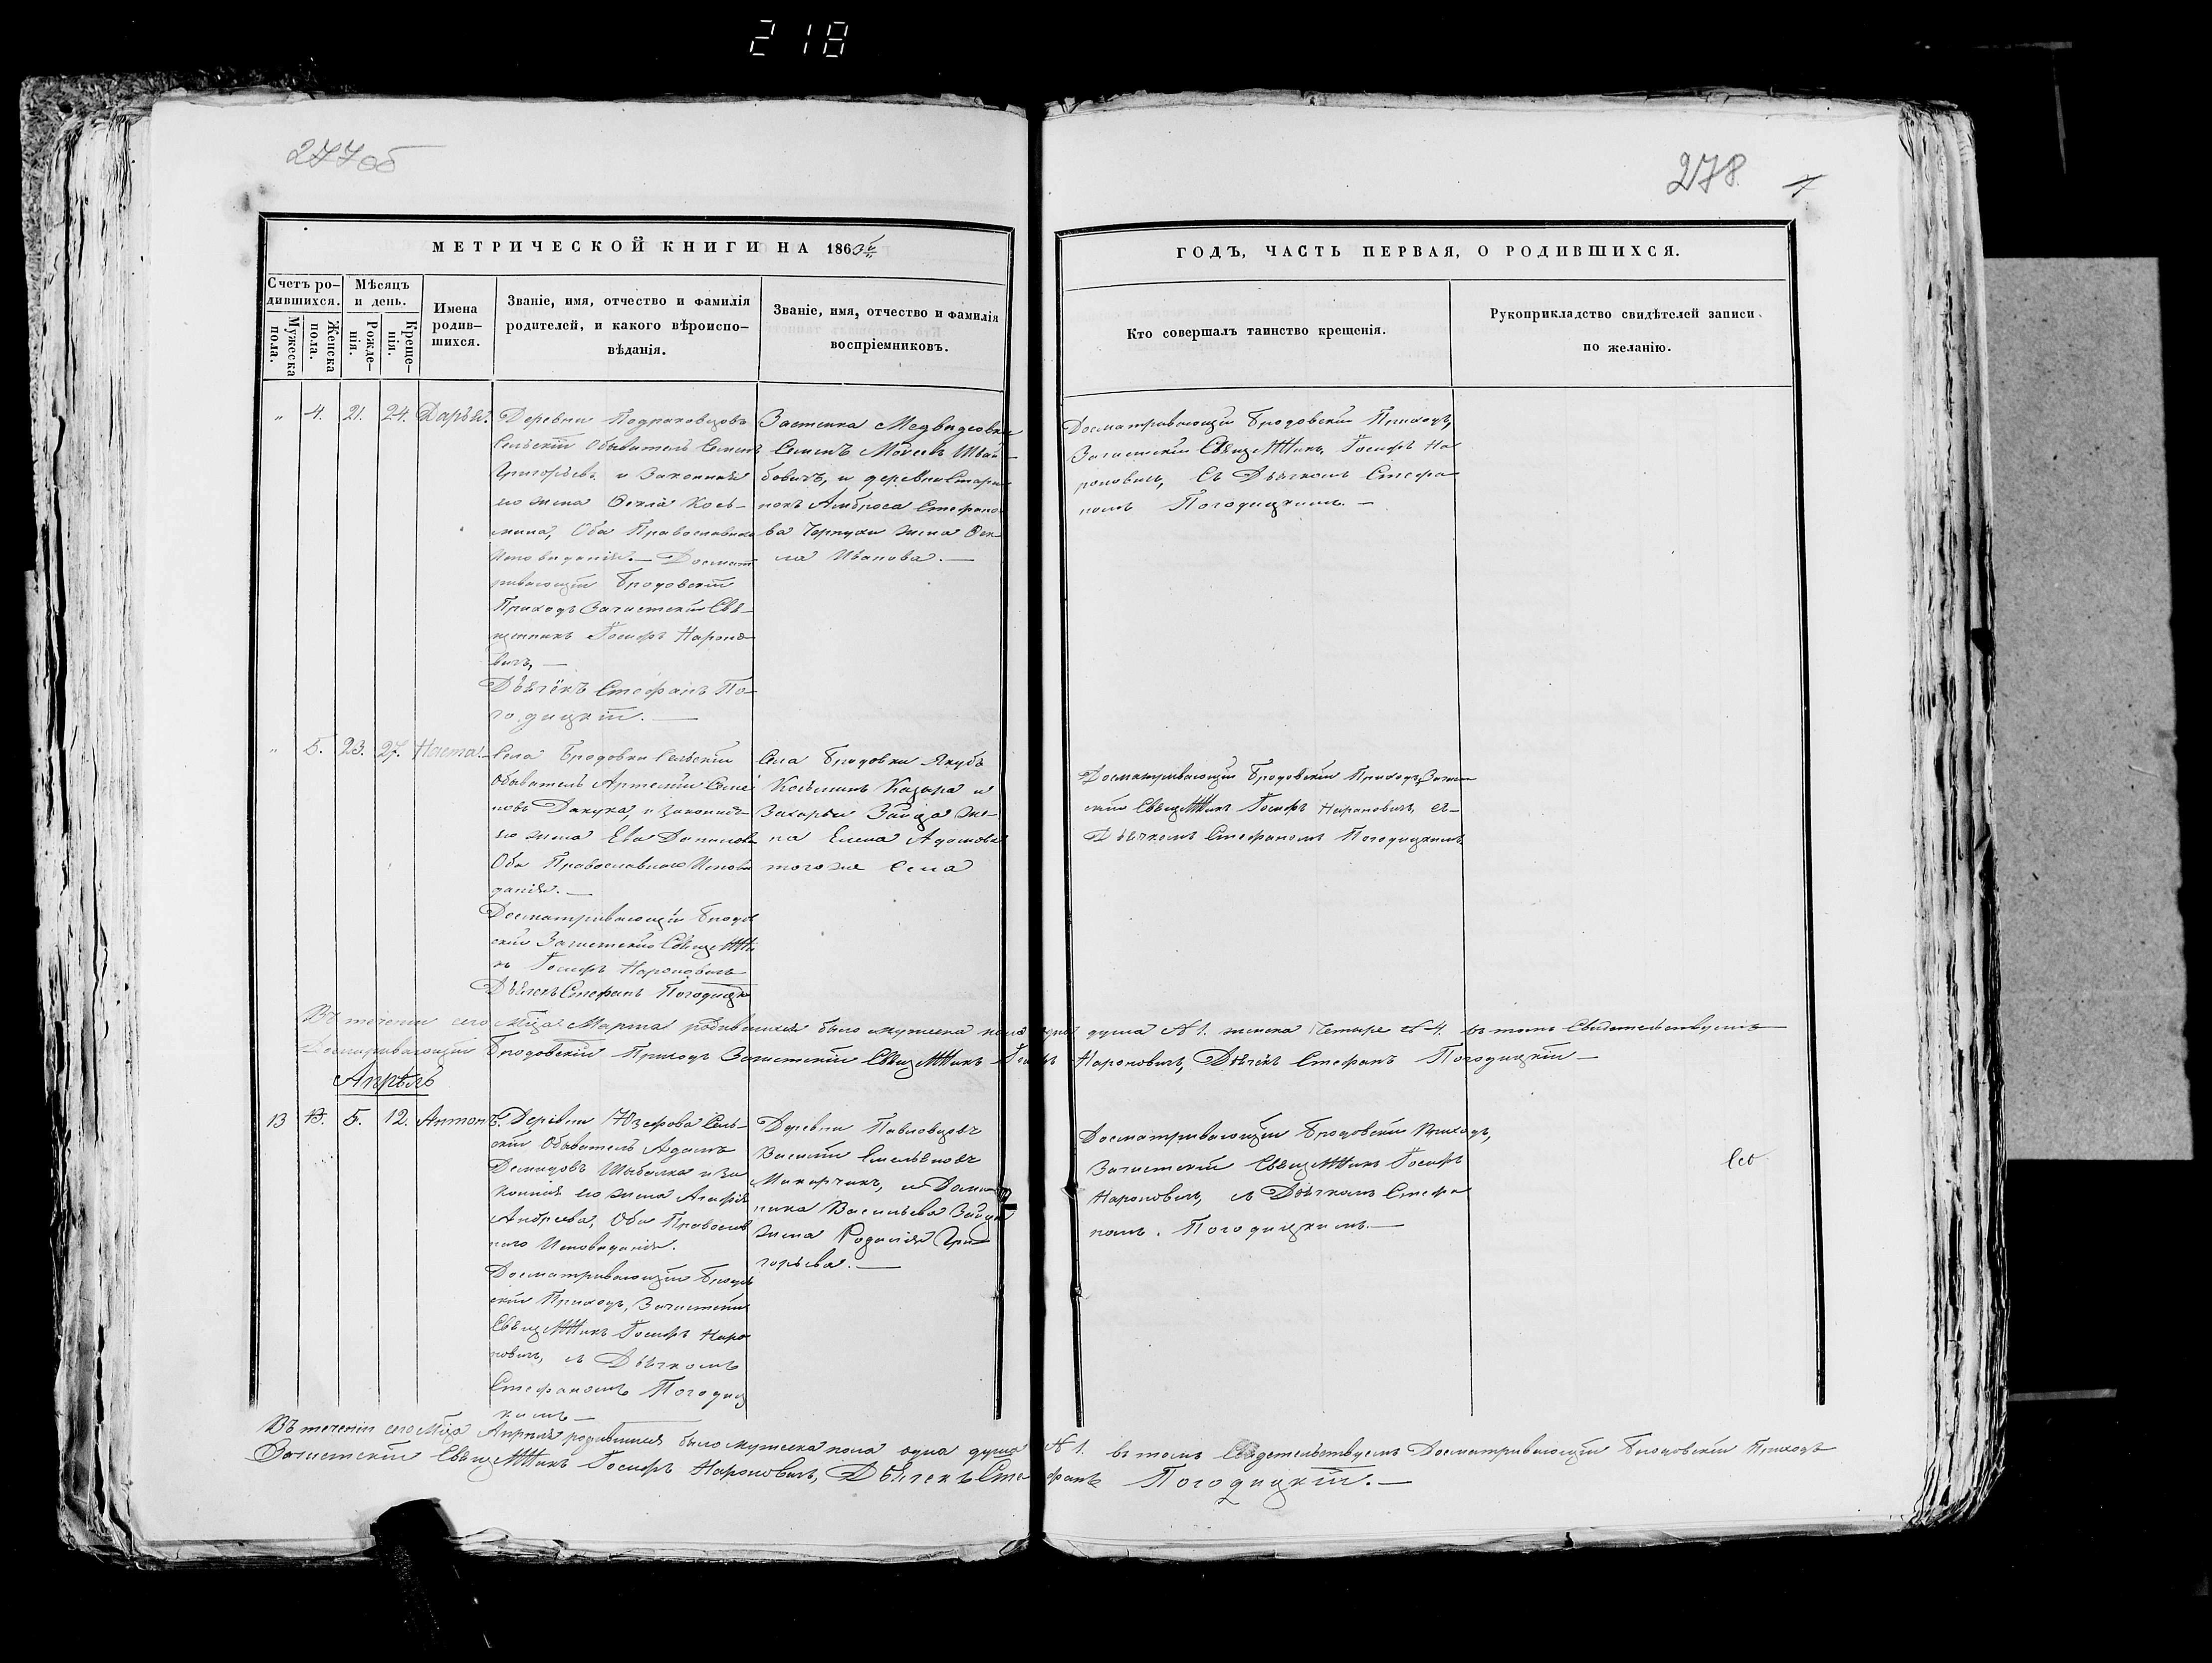 218
277об
278
МЕТРИЧЕСКОЙ КНИГИ НА 1863й
ГОДЪ, ЧАСТЬ ПЕРВАЯ, О РОДИВШИХСЯ.
Счетъ ро-
дившихся.
Мужеска
пола.
Женска
пола.
Мѣсяцъ
и день.
Рожде-
нія.
Креще-
нія.
Имена
родив-
шихся.
Званіе, имя, отчество и фамилія
родителей, и какого вѣроиспо-
вѣданія.
Званіе, имя, отчество и фамилія
воспріемниковъ.
Кто совершалъ таинство крещенія.
Рукоприкладство свидѣтелей записи
по желанію.
" 4. 21. 24. Дарья.
Деревни
Сельскій Обыватель Семенъ
Григорьевъ и Законная
его жена Ѳекла Козь-
мина, Оба Православнаго
Исповиданія. — Досмат
ривающій Бродовскій
Приходъ Загистскій Свя-
щенникъ Іосифъ Нароно
вичъ, —
Дьячекъ Стефанъ По-
годицкій. —
Застенка Медведовки
Семенъ
бовичъ, и деревни Стари
нокъ Амброса Стефано
ва жена Ѳек-
ла Иванова. —
Досматривающій Бродовскій Приходъ,
Загистскій Священникъ, Іосифъ На
роновичъ, съ Дьячкомъ Стефа
номъ Погодицкимъ. —
" 5. 23. 27. Наста.
Села Бродовки Сельскій
Обыватель Артемій Семе
новъ Дакука, и Законная
его жена Ева Данилова
Оба Православнаго Испови
данія. —
Досматривающій Бродов
скій Загистскій Священни
къ Іосифъ Нароновичъ
Дьячекъ Стефанъ Погодицкій
Села Бродовки Якубъ
Козьминъ Казыра и
Захарыи Зайца же-
на Елена Адамова
того же села
Досматривающій Бродовскій Приходъ, Загист
скій Священникъ Іосифъ Нароновичъ, съ
Дьячкомъ Стефаномъ Погодицкимъ
Въ теченіи сего Мца Марта родившихся было мужеска пола одна душа №1. женска Четыре №4. въ томъ Свидетельствуемъ
Досматривающій Бродовскій Приходъ Загистскій Священникъ Іосифъ Нароновичъ, Дьячекъ Стефанъ Погодицкій —
Апрѣль
13 13. 5. 12. Антонъ.
Деревни Юзефова Сель-
скій Обыватель Адамъ
Демидовъ Шыбалка и За
конная его жена Агафія
Андреева, Оба Православ
наго Исповиданія.
Досматривающій Бродов
скій Приходъ, Загистскій
Священникъ Іосифъ Наро
новичъ, съ Дьячкомъ
Стефаномъ Погодиц
кимъ —
Деревни Павловцовъ
Василій Емельяновъ
Макарчикъ, и Доми
ника Васильева Зайца
жена Розалія Гри
горьева. —
Досматривающій Бродовскій Приходъ,
Загистскій Священникъ Іосифъ
Нароновичъ, съ Дьячкомъ Стефа
номъ. Погодицкимъ. —
Въ теченіи сего Мца Апреля родившихся было мужеска пола одна душа №1. въ томъ Свидетельствуемъ Досматривающій Бродовскій Приходъ
Загистскій Священникъ Іосифъ Нароновичъ, Дьячекъ Стефанъ Погодицкій. —